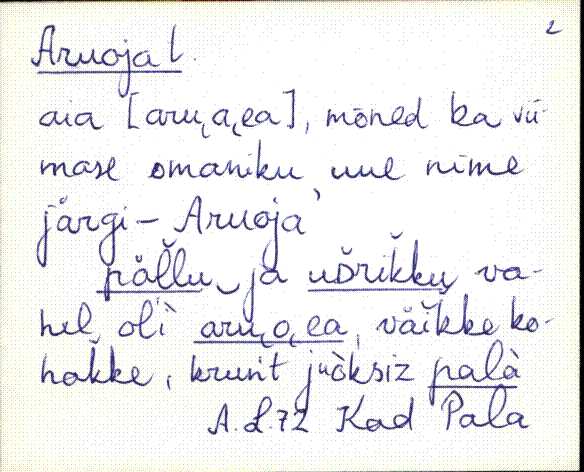 2
Aruoja t.
aia [aru̮a̮ea], mõned ka vii-
mase omaniku uue nime
järgi – Aruoja
põllu ja ušrikku va-
hel oli aru̮o̮ea, väikke ko-
hakke, krunt juoksiz palà
A.L. 72 Kad Pala